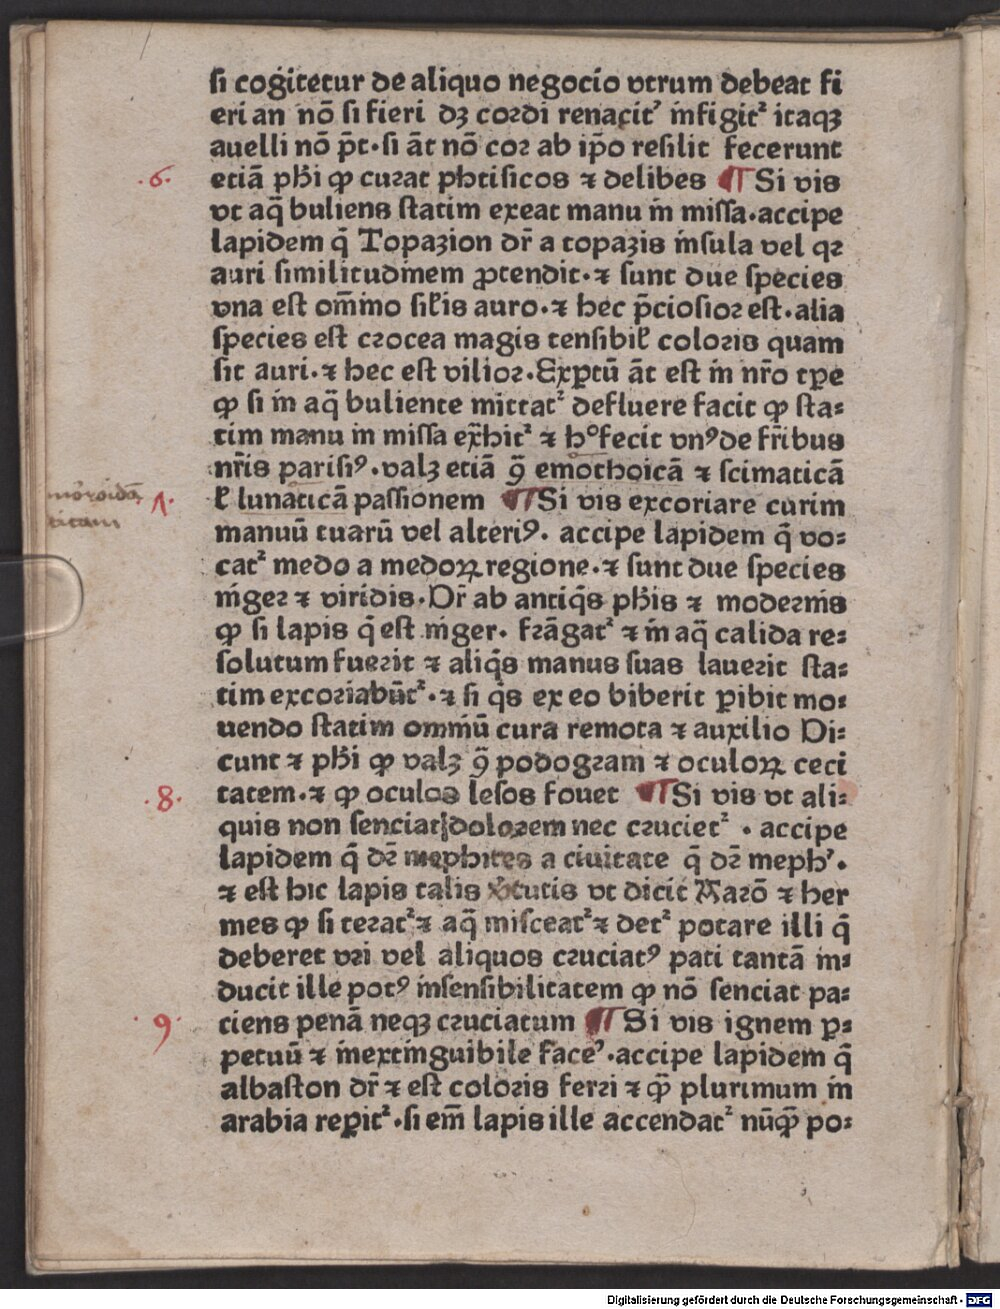 si cogitetur de aliquo negocio vtrum debeat fi
eri an nō si fieri dꝫ cordi renacit᷑ infigit᷑ itaqꝫ
auelli nō p̄t·si āt nō cor ab ip̄o resilit fecerunt
·6· etiā pħi ꝙ curat phtisicos ⁊ delibes ¶ Si vis
vt aq̄ buliens statim exeat manu in missa·accipe
lapidem q̄ Topazion dr̄ a topazis insula vel qꝛ
auri similitudinem ꝓtendit·⁊ sunt due species
vna est om̄ino sił̄is auro·⁊ hec p̄ciosior est·alia
species est crocea magis tensibił coloris quam
sit auri·⁊ hec est vilior·Exꝑtū āt est in nr̄o tꝑe
ꝙ si in aq̄ buliente mittat᷑ defluere facit ꝙ sta⸗
tim manu in missa ex̄hit᷑ ⁊ h° fecit vnꝰ de fr̄ibus
nr̄is parisiꝰ·valꝫ etiā ꝯ̄ emothoicā ⁊ scimaticā
·7· ł lunaticā passionem ¶ Si vis excoriare curim
manuū tuarū vel alteriꝰ· accipe lapidem q̄ vo⸗
cat᷑ medo a medoꝝ regione·⁊ sunt due species
niger ⁊ viridis·Dr̄ ab antiq̄s pħis ⁊ modernis
ꝙ si lapis q̄ est niger· frāgat᷑ ⁊ in aq̄ calida re⸗
solutum fuerit ⁊ aliq̄s manus suas lauerit sta⸗
tim excoriabūt᷑·⁊ si q̄s ex eo biberit ꝑibit mo⸗
uendo statim omniū cura remota ⁊ auxilio Di⸗
cunt ⁊ pħi ꝙ valꝫ ꝯ̄ podogram ⁊ oculoꝝ ceci
·8· tatem·⁊ ꝙ oculos lesos fouet ¶ Si vis vt ali⸗
quis non senciat dolorem nec cruciet᷑ · accipe
lapidem q̄ dr̄ mephites a ciuitate q̄ dr̄ meph᷑·
⁊ est hic lapis talis v̄tutis vt dicit Aarō ⁊ her
mes ꝙ si terat᷑ ⁊ aq̄ misceat᷑ ⁊ det᷑ potare illi q̄
deberet vri vel aliquos cruciatꝰ pati tantā in⸗
ducit ille potꝰ insensibilitatem ꝙ nō senciat pa⸗
·9· ciens penā neqꝫ cruciatum ¶ Si vis ignem ꝑ⸗
petuū ⁊ inextinguibile face᷑·accipe lapidem q̄
albaston dr̄ ⁊ est coloris ferri ⁊ ꝙ̄ plurimum in
arabia reꝑit᷑·si em̄ lapis ille accendat᷑ nūꝙ̄ po⸗
Digitalisierung gefördert durch die Deutsche Forschungsgemeinschaft - DFG